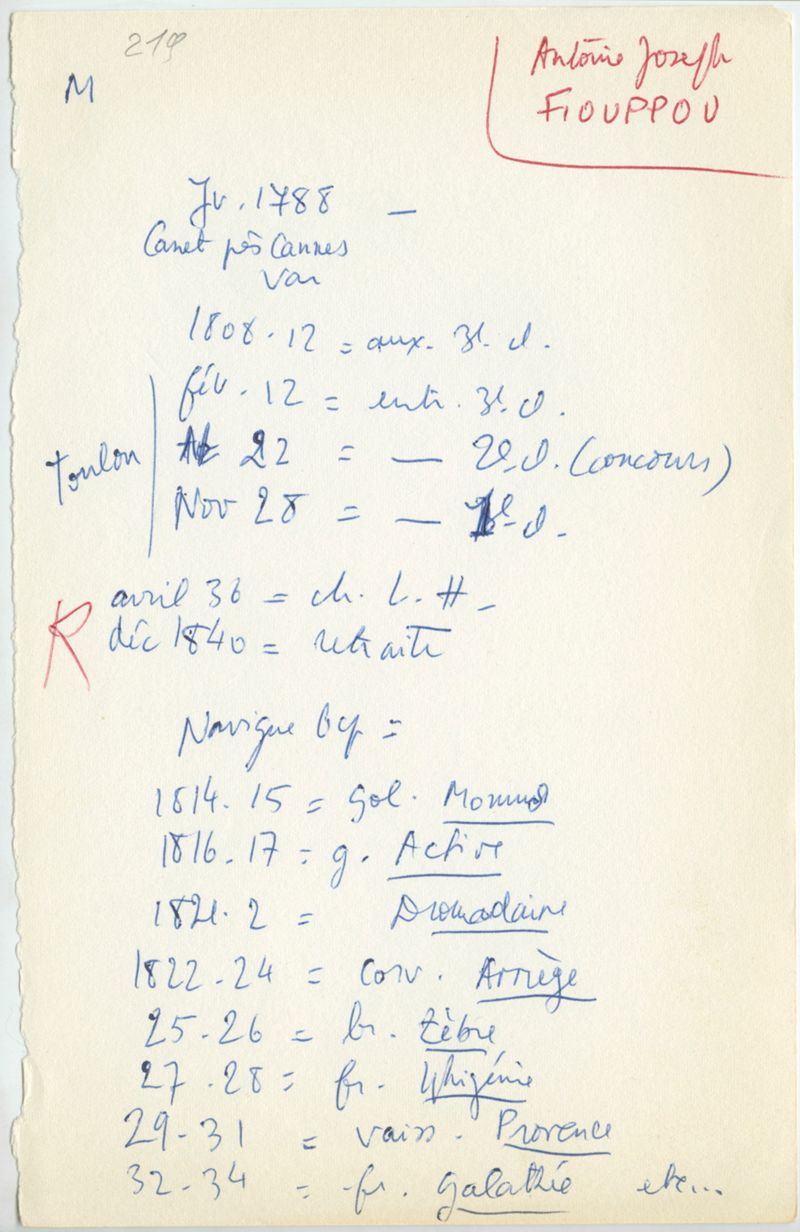 219
M
Antoine Joseph
FIOUPPOU
Jv. 1788 —
Canet près Cannes
Var
1808.12 = aux. 3e cl.
fév. 12 = entr. 3e cl.
Toulon
22 = — 2e cl. (concours)
Nov 28 = — 1e cl.
avril 36 = ch. L. H_
R
déc 1840 = retraite
Navigue bcp =
1814.15 = gol. Momus
1816.17 = g. Active
1821.2 = Dromadaire
1822.24 = corv. Arriège
25.26 = br. Zèbre
27.28 = fr. Iphigénie
29-31 = vaiss. Provence
32-34 = fr. Galathée etc...